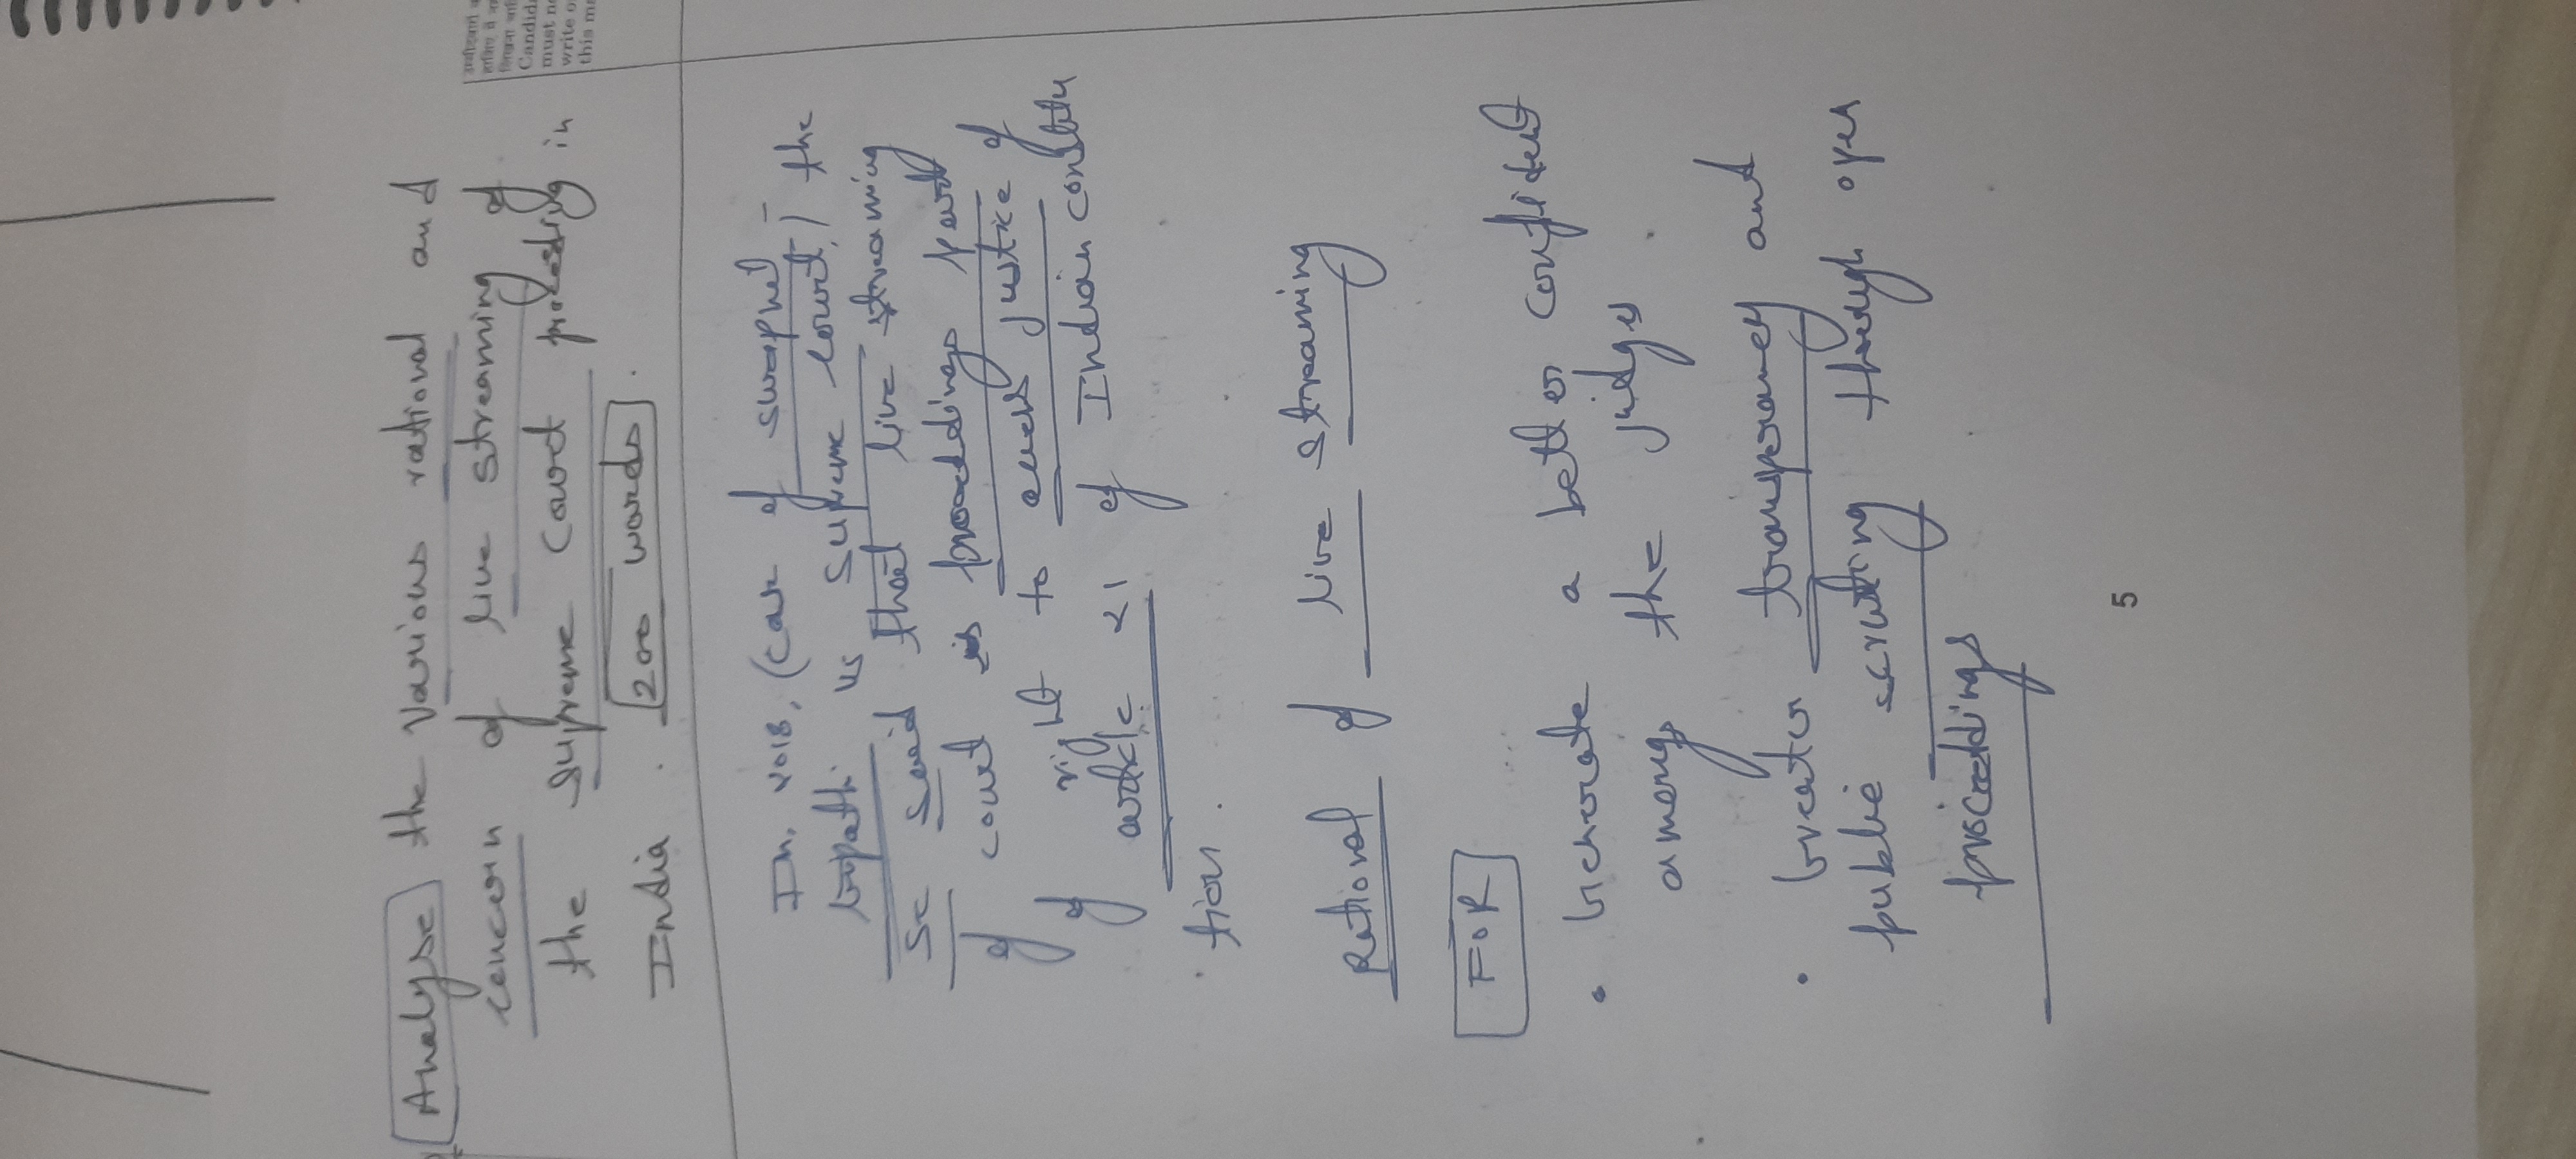 Analyse the various rational and
concern of live streaming of
the Supreme Court proceeding in
India. 200 words.
Candida
must no
write o
this ma
In, 2018, (Case of swapnil
tripathi vs Supreme court,) the
SC said that live streaming
of court is proceedings part
of right to access justice of
article 21 of Indian constitu
tion.
Rational of live streaming
FOR
• Increate a better confident
among the judges
• Greater transparancy and
public scruting through open
proceedings
5